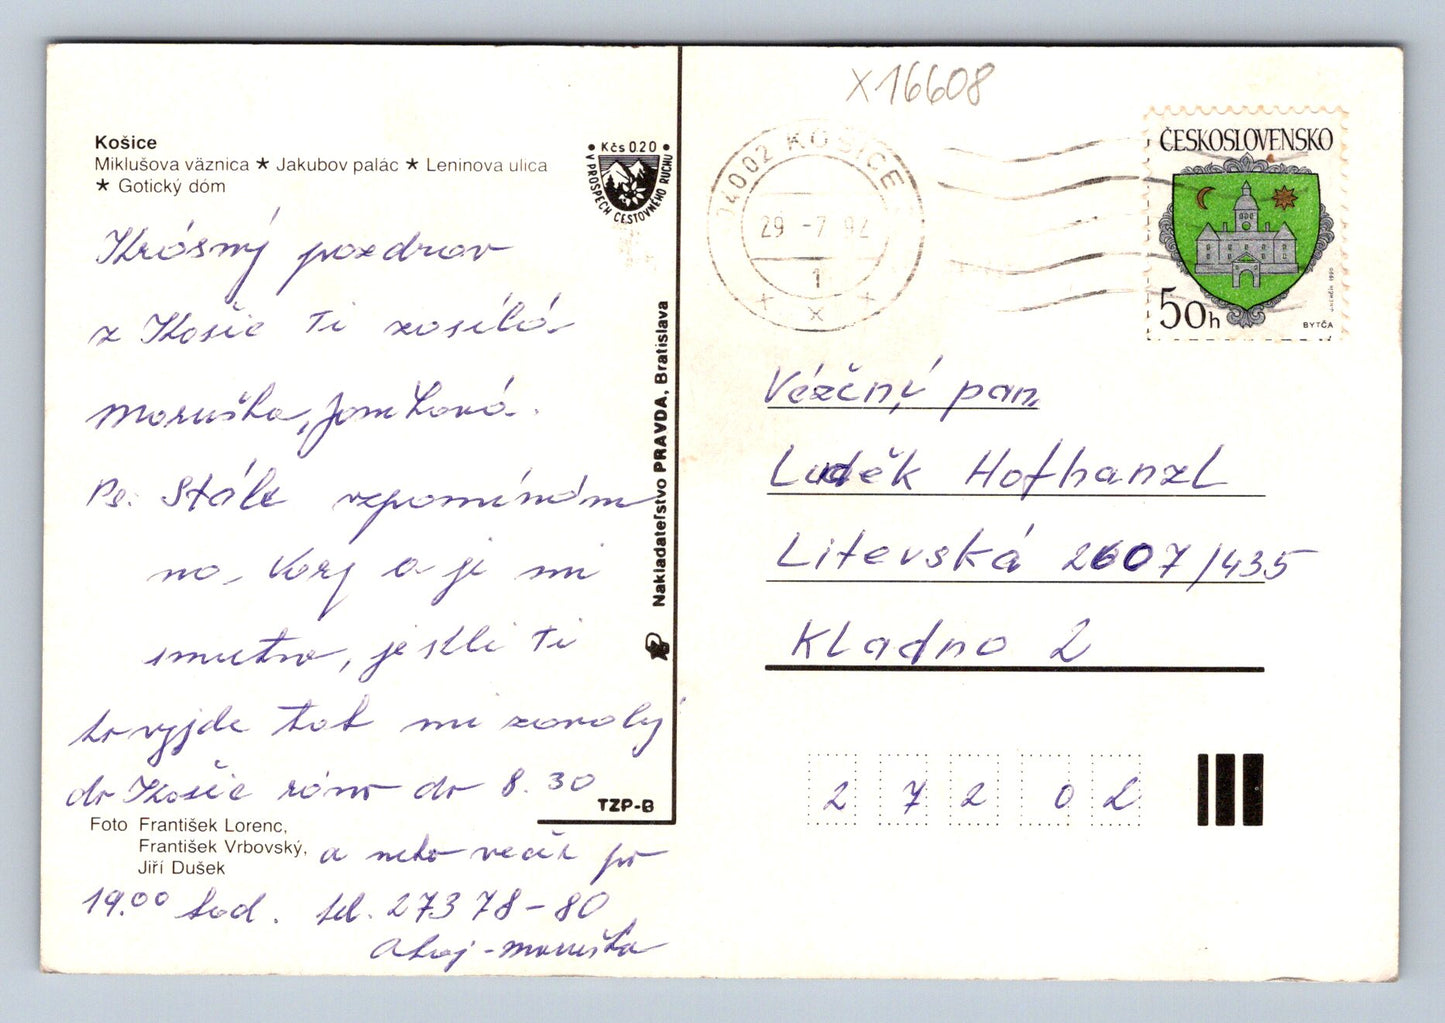 Košice
Miklušova väznica ★ Jakubov palác ★ Leninova ulica
★ Gotický dóm
• Kčs 0.20 •
V PROSPECH CESTOVNÉHO RUCHU
Krásný pozdrav
z Košic Ti zasílá
Maruška, Jankova.
Ps. Stále vzpomínám
na Vary a je mi
smutno, jestli Ti
to vyjde tak mi zavolej
do Košic ráno do 8.30
TZP-B
Foto František Lorenc,
František Vrbovský,
Jiří Dušek
a nebo večer po
19.00 hod. tel. 27378-80
Ahoj - Maruška
Nakladateľstvo PRAVDA, Bratislava
X16608
04002 KOŠICE
29 -7 92
1
x x x
ČESKOSLOVENSKO
50h
BYTČA
Vážený pan,
Luděk Hofhanzl
Litevská 2607/435
Kladno 2
2 7 2 0 2